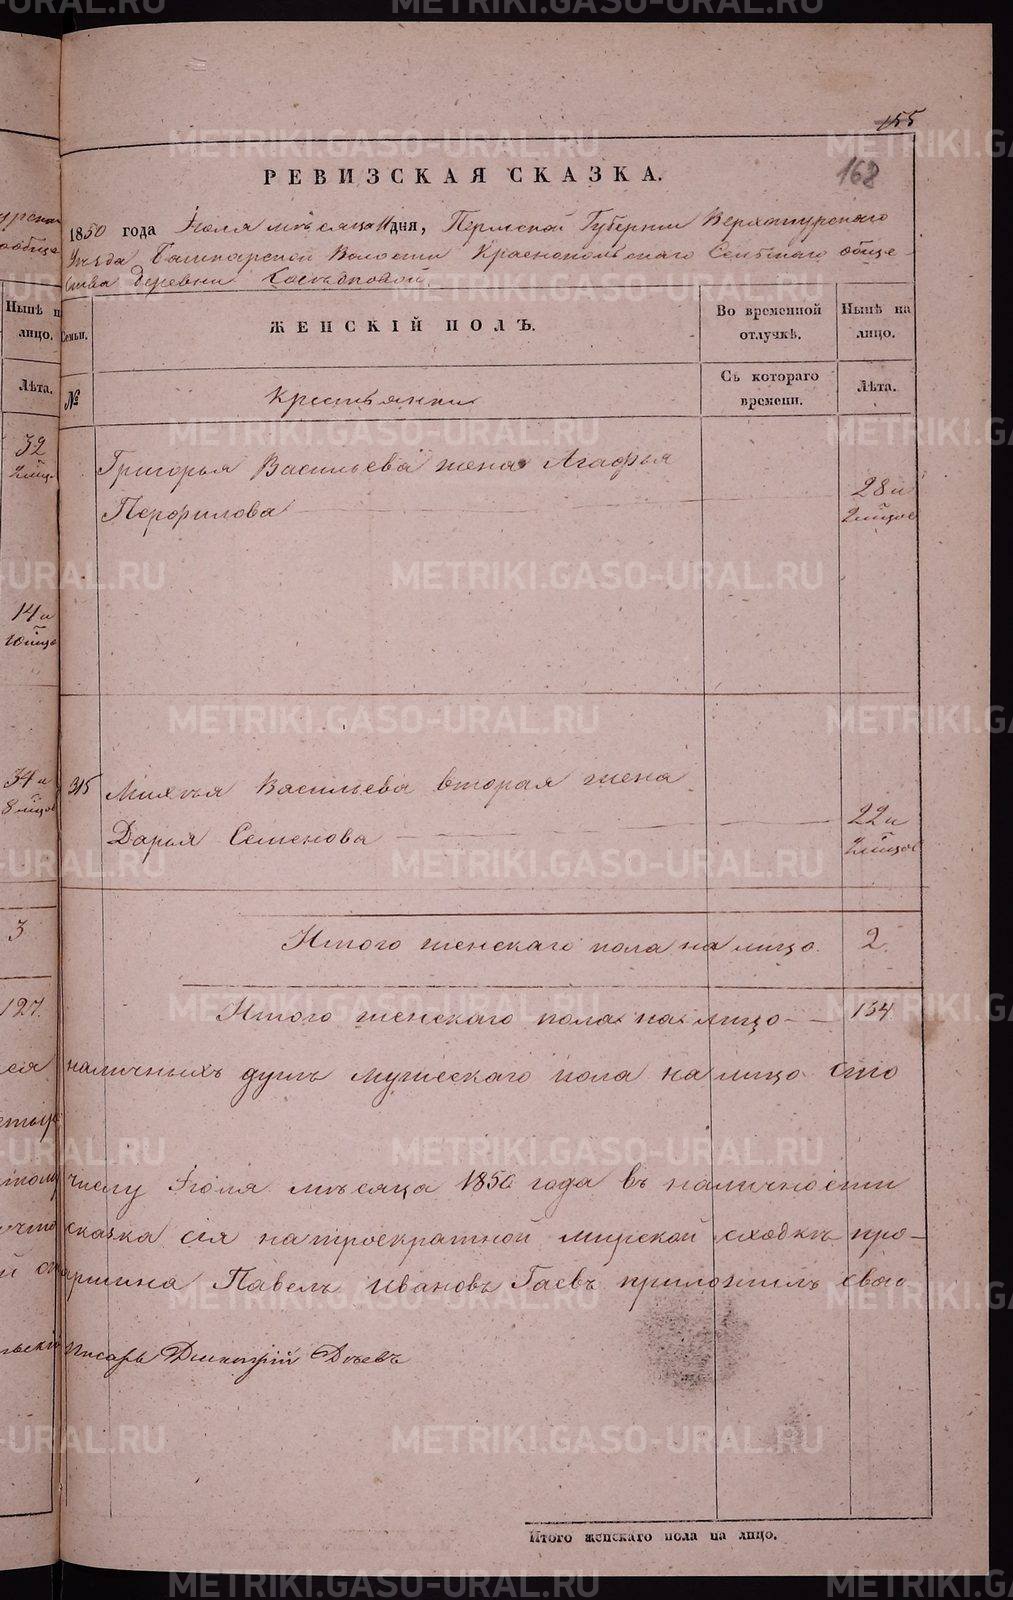 155
168
РЕВИЗСКАЯ СКАЗКА.
1850 года Іюля мѣсяца 11 дня, Пермской Губерніи Верхотурскаго
Уѣзда Башкарской Волости Краснопольскаго Сельскаго обще-
ства Деревни
Нынѣ н
лицо.
Лѣта.
Семьи.
№
ЖЕНСКІЙ ПОЛЪ.
Во временной
отлучкѣ.
Нынѣ на
лицо.
Съ котораго
времени.
Лѣта.
Крестьянки
32
Григорья Васильева жена Агафья
Перфилова
28 и
2 мѣсяц
14 и
10 мѣсяц
34 и
8 мѣсяц
315
Михѣя Васильева вторая жена
Дарья Семенова
22 и
2 мѣсяц
3
Итого женскаго пола на лицо. 2
127.
Итого женскаго пола на лицо 134
наличныхъ душъ мужескаго пола на лицо сто
числу Іюля мѣсяца 1850 года въ наличности
сказка сія на троекратной мирской сходкѣ про-
аршина Павелъ Ивановъ Гаевъ приложилъ свою
Писарь Дмитрій
Итого женскаго пола на лицо.
METRIKI.GASO-URAL.RU